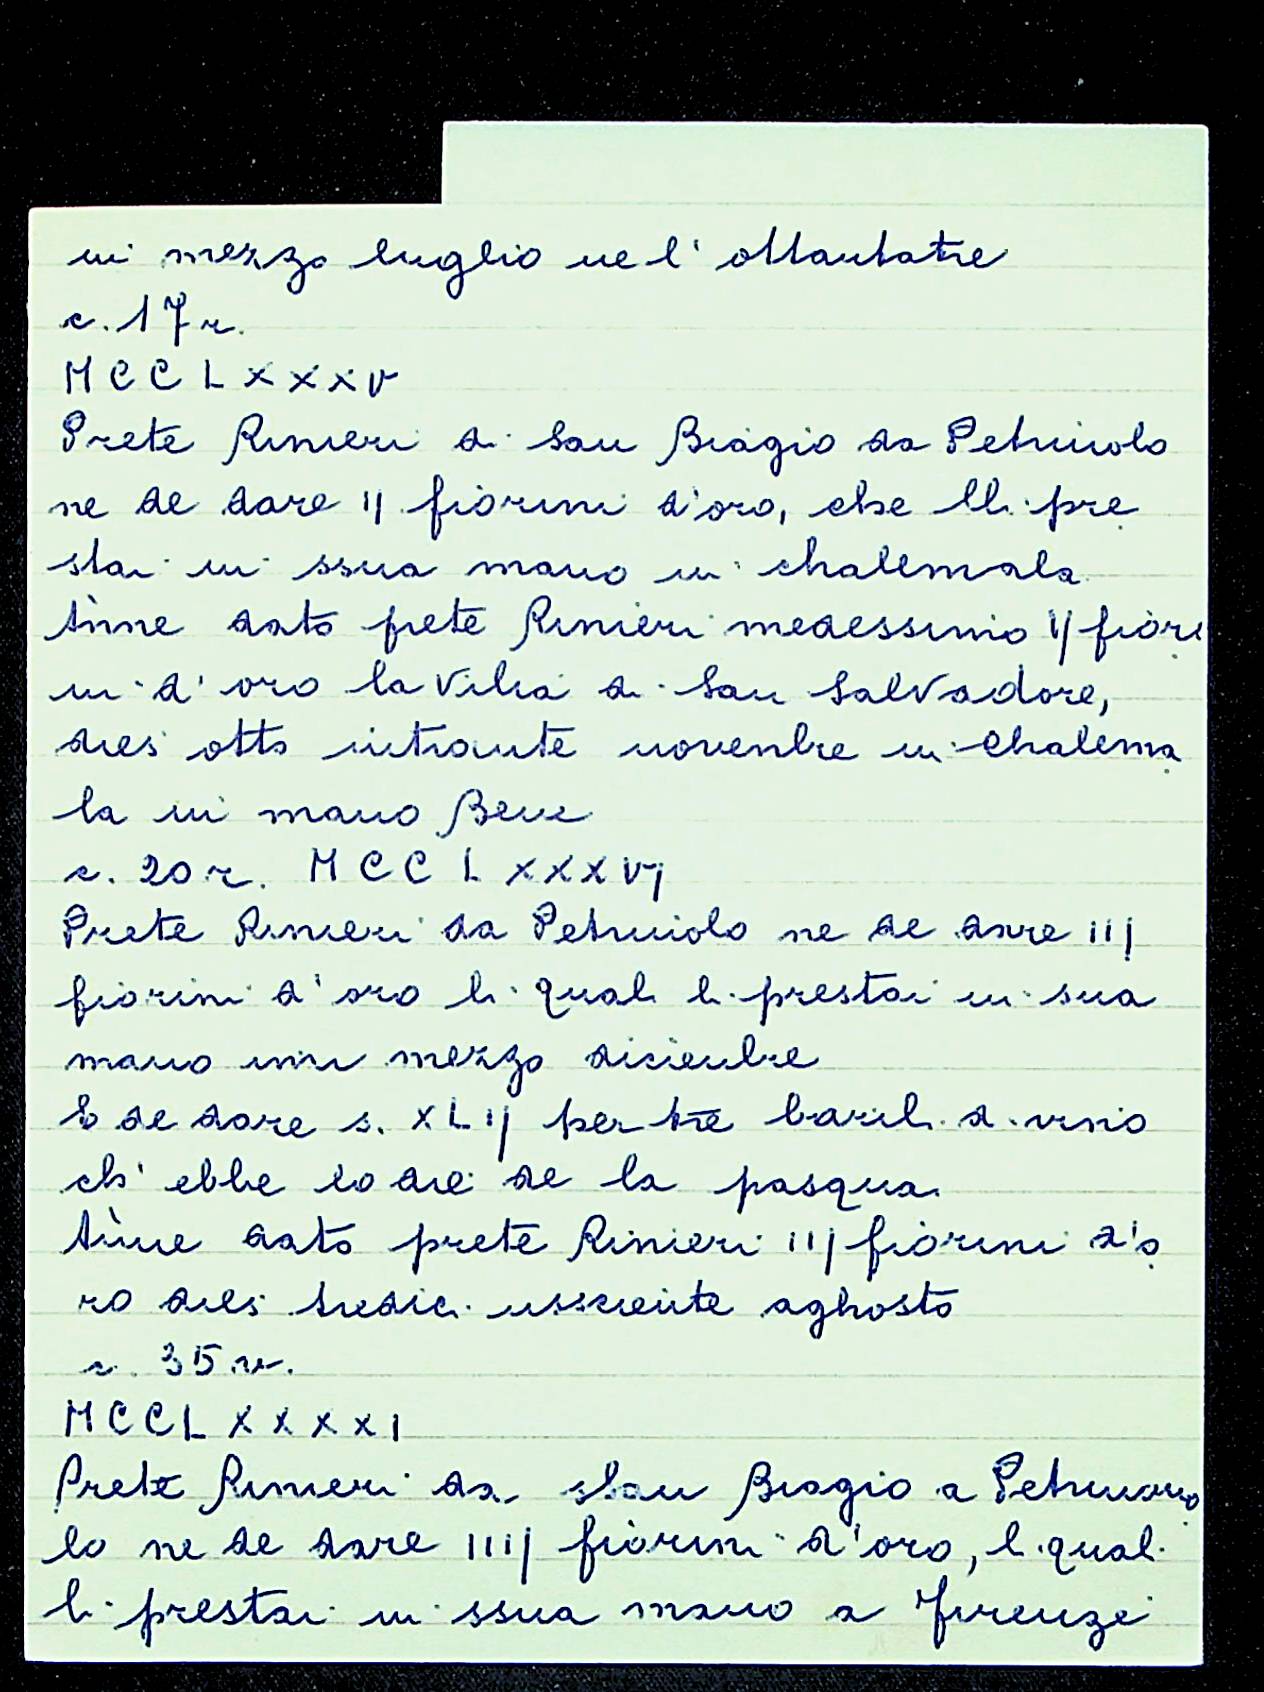 in mezzo luglio ne l'ottantatre
c. 17 r.
MCCLXXXV
Prete Rinieri di San Biagio da Petriuolo
ne de dare ij fiorini d'oro, che lli pre
stai in ssua mano in chalemala
Ànne dato prete Rinieri medessimo ij fiori
ni d'oro la vilia di San Salvadore,
dies otto intrante novenbre in Chalema
la in mano Bene
c. 20 r. MCCLXXXVj
Prete Rinieri da Petriuolo ne de dare iij
fiorini d'oro li quali li prestai in sua
mano inn mezzo diciembre
E de dare s. XLij per tre barili di vino
ch'ebbe lo die de la pasqua.
Ànne dato prete Rinieri iij fiorini d'o
ro dies tredici usscente aghosto
c. 35 v.
MCCLXXXXI
Prete Rinieri da San Biagio a Petriuo
lo ne de dare iiij fiorini d'oro, li quali
li prestai in ssua mano a Firenze